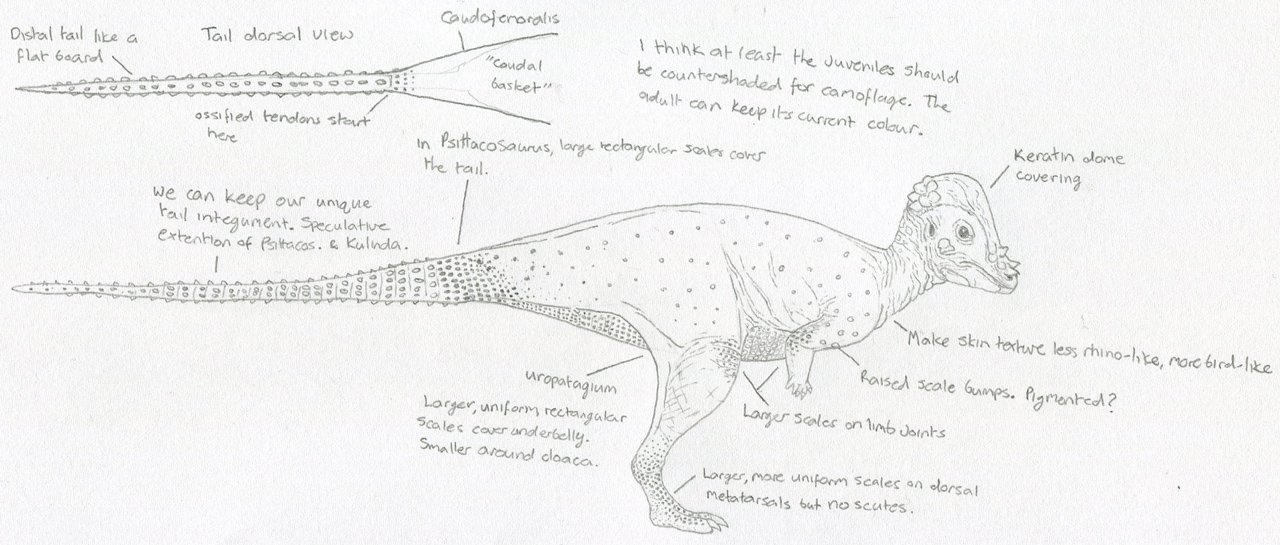 Distal tail like a
flat board
Tail dorsal view
Caudofemoralis
"Caudal
basket"
ossified tendons start
here
I think at least the juveniles should
be countershaded for camoflage. The
adult can keep its current colour.
in Psittacosaurus, large rectangular scales cover
the tail.
Keratin dome
covering
We can keep our unique
tail integument. Speculative
extention of Psittacos. & Kulinda.
Make skin texture less rhino-like, more bird-like
Raised scale bumps. Pigmented?
Larger scales on limb joints
uropatagium
Larger, uniform, rectangular
scales cover underbelly.
Smaller around cloaca.
Larger, more uniform scales on dorsal
metatarsals but no scutes.